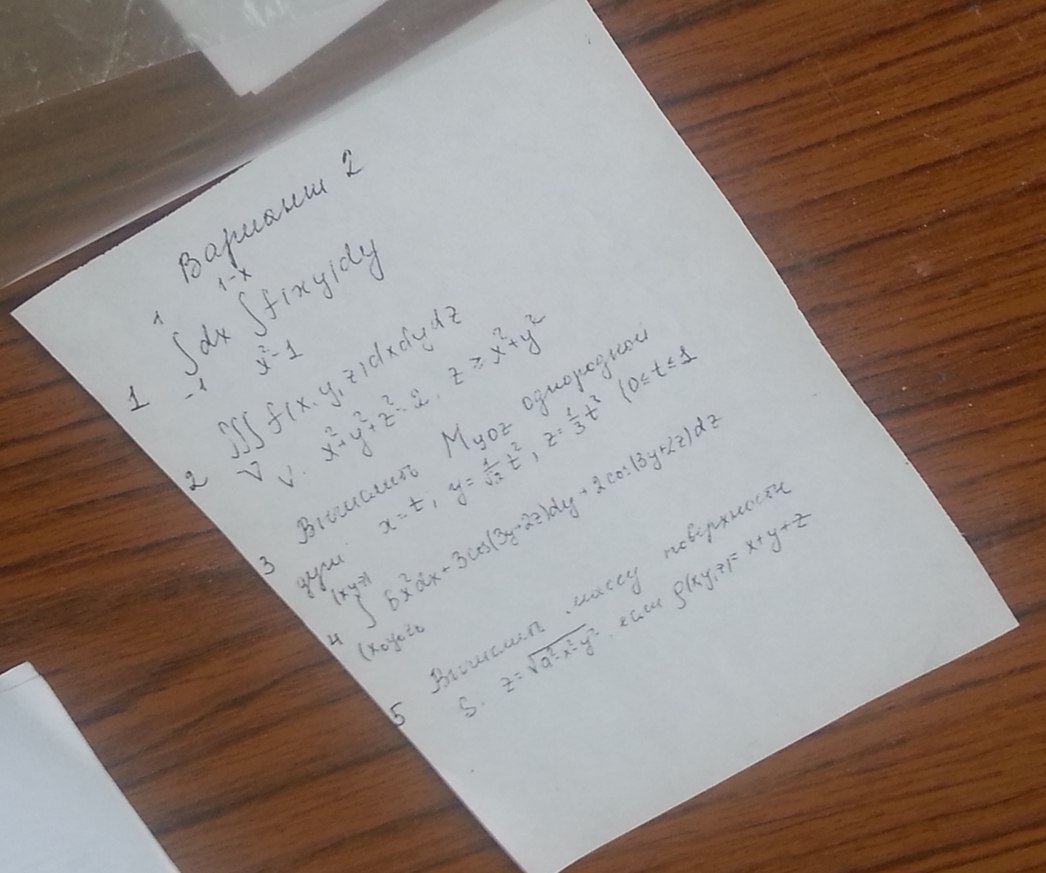 Вариант 2
1 ∫₋₁¹ dx ∫_{x²-1}^{1-x} f(x,y)dy
2 ∭_V f(x,y,z)dxdydz
V: x²+y²+z²=2, z ≥ x²+y²
3 Вычислить Myoz однородной
дуги x=t, y=1/√2 t², z=1/3 t³ (0≤t≤1
4 ∫_{(x₀y₀z₀}^{(xyz)} 6x²dx+3cos(3y+2z)dy+2cos(3y+2z)dz
5 Вычислить массу поверхности
S: z=√a²-x²-y², если ρ(x,y,z)=x+y+z